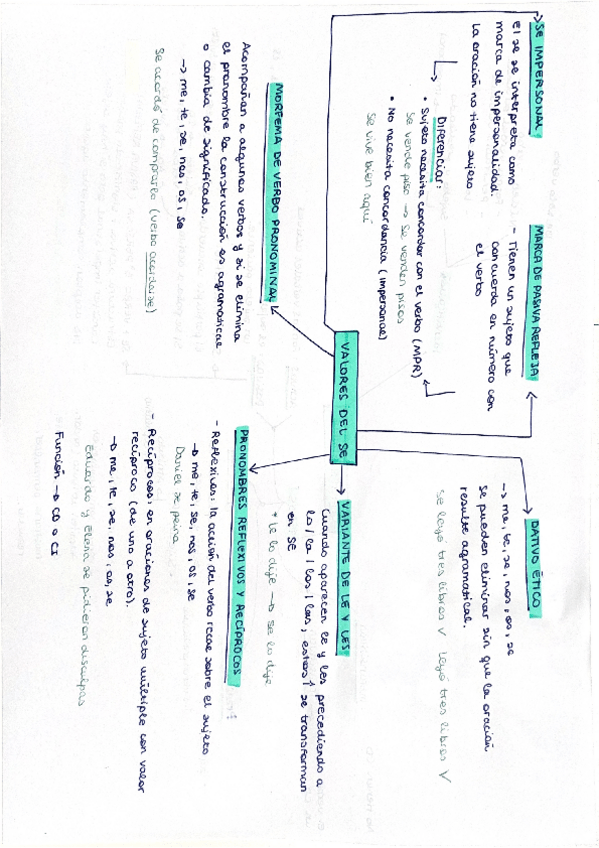 VALORES DEL SE
SE IMPERSONAL
el se se interpreta como
marca de impersonalidad.
La oración no tiene sujeto
MARCA DE PASIVA REFLEJA
- Tienen un sujeto que
concuerda en número con
el verbo
Diferenciar:
• Sujeto necesita concordar con el verbo (MPR)
Se vende piso → Se venden pisos
• No necesita concordancia (impersonal)
Se vive bien aquí
DATIVO ÉTICO
→ me, te, se, nos, os, se
Se pueden eliminar sin que la oración
resulte agramatical.
Se leyó tres libros V Leyó tres libros V
VARIANTE DE LE Y LES
Cuando aparecen le y les precediendo a
lo/la/los/las, estos se transforman
en SE
* Le lo dije → Se lo dije
PRONOMBRES REFLEXIVOS Y RECÍPROCOS
- Reflexivos: la acción del verbo recae sobre el sujeto
→ me, te, se, nos, os, se
Daniel se peina.
- Recíprocos: en oraciones de sujeto múltiple con valor
recíproco (de uno a otro).
→ me, te, se, nos, os, se
Eduardo y Elena se pidieron disculpas
Función → CD o CI
MORFEMA DE VERBO PRONOMINAL
Acompañan a algunos verbos y si se elimina
el pronombre la construcción es agramatical
o cambia de significado.
→ me, te, se, nos, os, se
Se acordó de comprarlo (verbo acordarse)